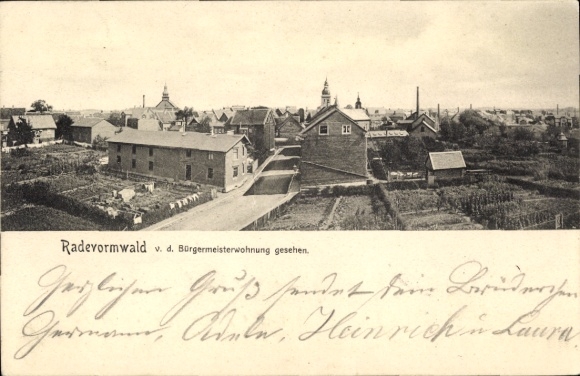 Radevormwald v. d. Bürgermeisterwohnung gesehen.
Herzlichen Gruß sendet dein Brüderchen
Hermann, Adele, Heinrich u Laura.